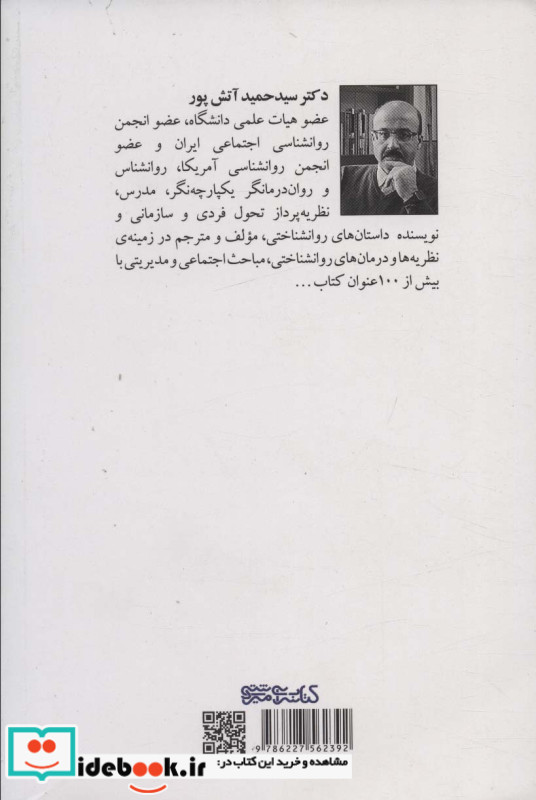 دکتر سیدحمید آتش پور
عضو هیات علمی دانشگاه، عضو انجمن
روانشناسی اجتماعی ایران و عضو
انجمن روانشناسی آمریکا، روانشناس
و روان‌درمانگر یکپارچه‌نگر، مدرس،
نظریه‌پرداز تحول فردی و سازمانی و
نویسنده داستان‌های روانشناختی، مؤلف و مترجم در زمینه‌ی
نظریه‌ها و درمان‌های روانشناختی، مباحث اجتماعی و مدیریتی با
بیش از ۱۰۰عنوان کتاب...
کتابسرای میردشتی
9 786227 562392
مشاهده و خرید این کتاب در:
idebook.ir